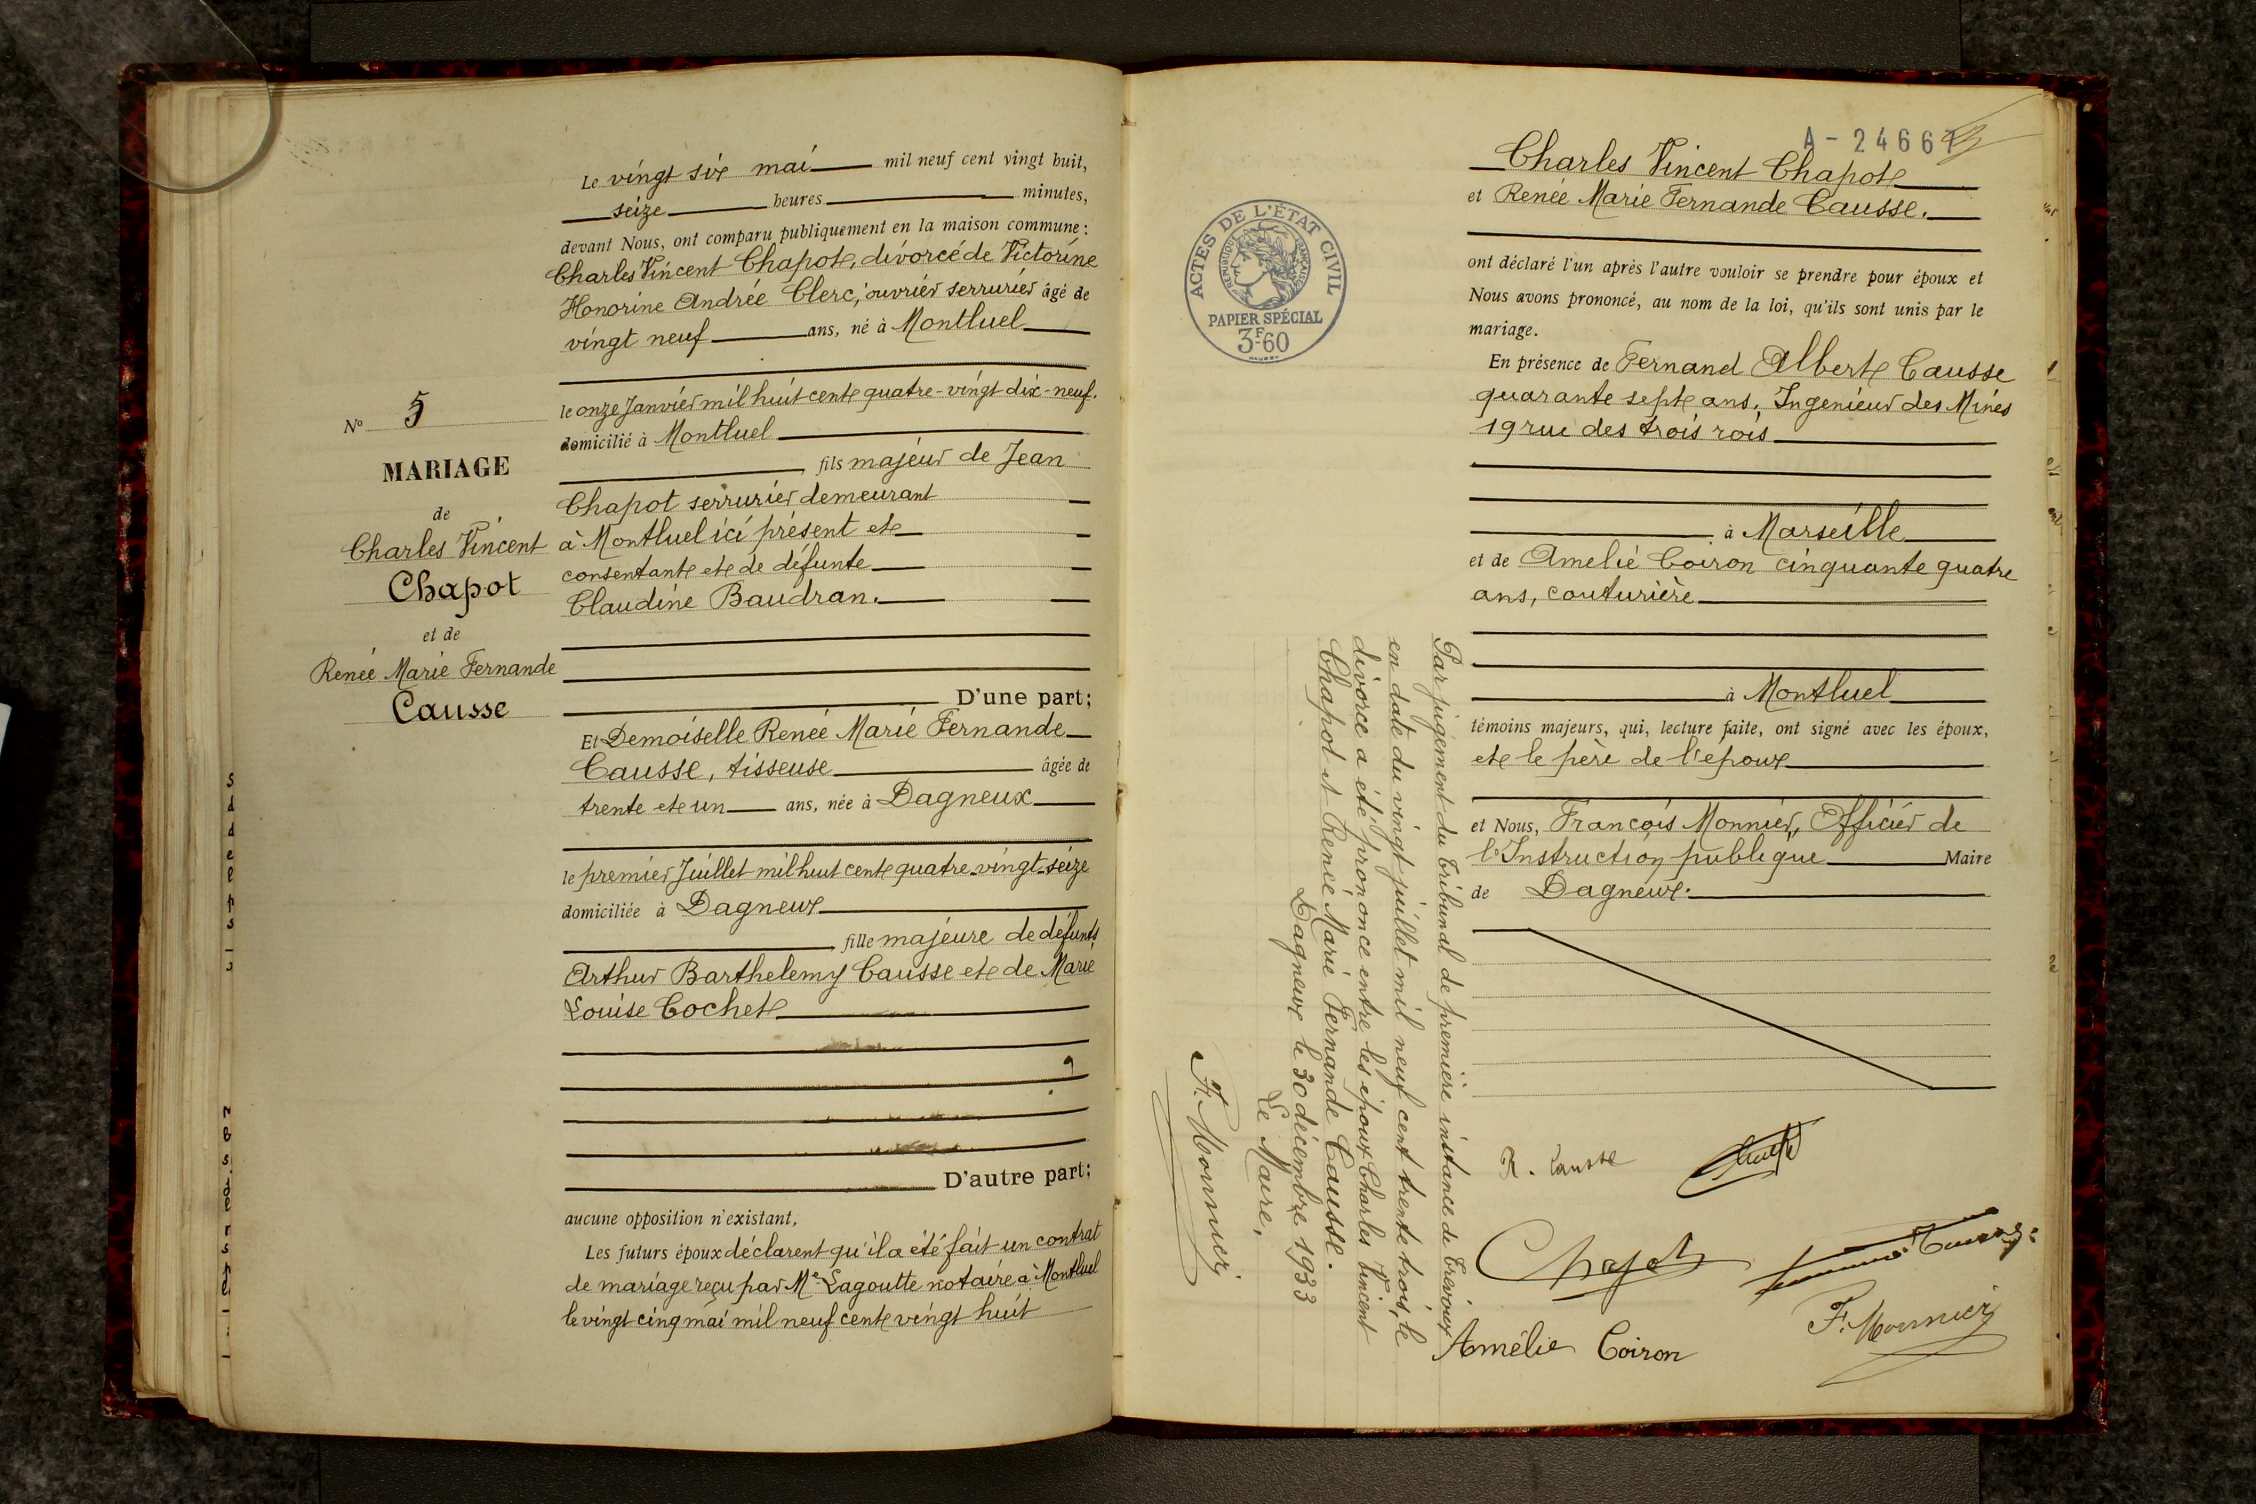 Le vingt six mai mil neuf cent vingt huit,
seize heures minutes,
devant Nous, ont comparu publiquement en la maison commune :
Charles Vincent Chapot, divorcé de Victorine
Honorine Andrée Clerc, ouvrier serrurier âgé de
vingt neuf ans, né à Montluel
le onze Janvier mil huit cent quatre-vingt dix-neuf.
domicilié à Montluel
fils majeur de Jean
Chapot serrurier demeurant
à Montluel ici présent et
consentant et de défunte
Claudine Baudran.
D'une part;
Et Demoiselle Renée Marie Fernande
Causse, tisseuse âgée de
trente et un ans, née à Dagneux
le premier Juillet mil huit cent quatre-vingt-seize
domiciliée à Dagneux
fille majeure de défunts
Arthur Barthelemy Causse et de Marie
Louise Cochet
D'autre part;
aucune opposition n'existant,
Les futurs époux déclarent qu'il a été fait un contrat
de mariage reçu par Me Lagoutte notaire à Montluel
le vingt cinq mai mil neuf cent vingt huit
No 5
MARIAGE
de
Charles Vincent
Chapot
et de
Renée Marie Fernande
Causse
A-2466
Charles Vincent Chapot
et Renée Marie Fernande Causse.
ont déclaré l'un après l'autre vouloir se prendre pour époux et
Nous avons prononcé, au nom de la loi, qu'ils sont unis par le
mariage.
En présence de Fernand Albert Causse
quarante sept ans, Ingenieur des Mines
19 rue des trois rois
à Marseille
et de Amelie Coiron cinquante quatre
ans, couturière
à Montluel
témoins majeurs, qui, lecture faite, ont signé avec les époux,
et le père de l'époux
et Nous, François Monnier, Officier de
l'Instruction publique Maire
de Dagneux.
R. Causse
Chapot
F. Monnier
Amélie Coiron
ACTES DE L'ÉTAT CIVIL
RÉPUBLIQUE FRANÇAISE
PAPIER SPÉCIAL
3F60
Par jugement du Tribunal de première instance de Trévoux
en date du vingt juillet mil neuf cent trente trois, le
divorce a été prononcé entre les époux Charles Vincent
Chapot et Renée Marie Fernande Causse.
Dagneux le 30 décembre 1933
Le Maire,
F. Monnier